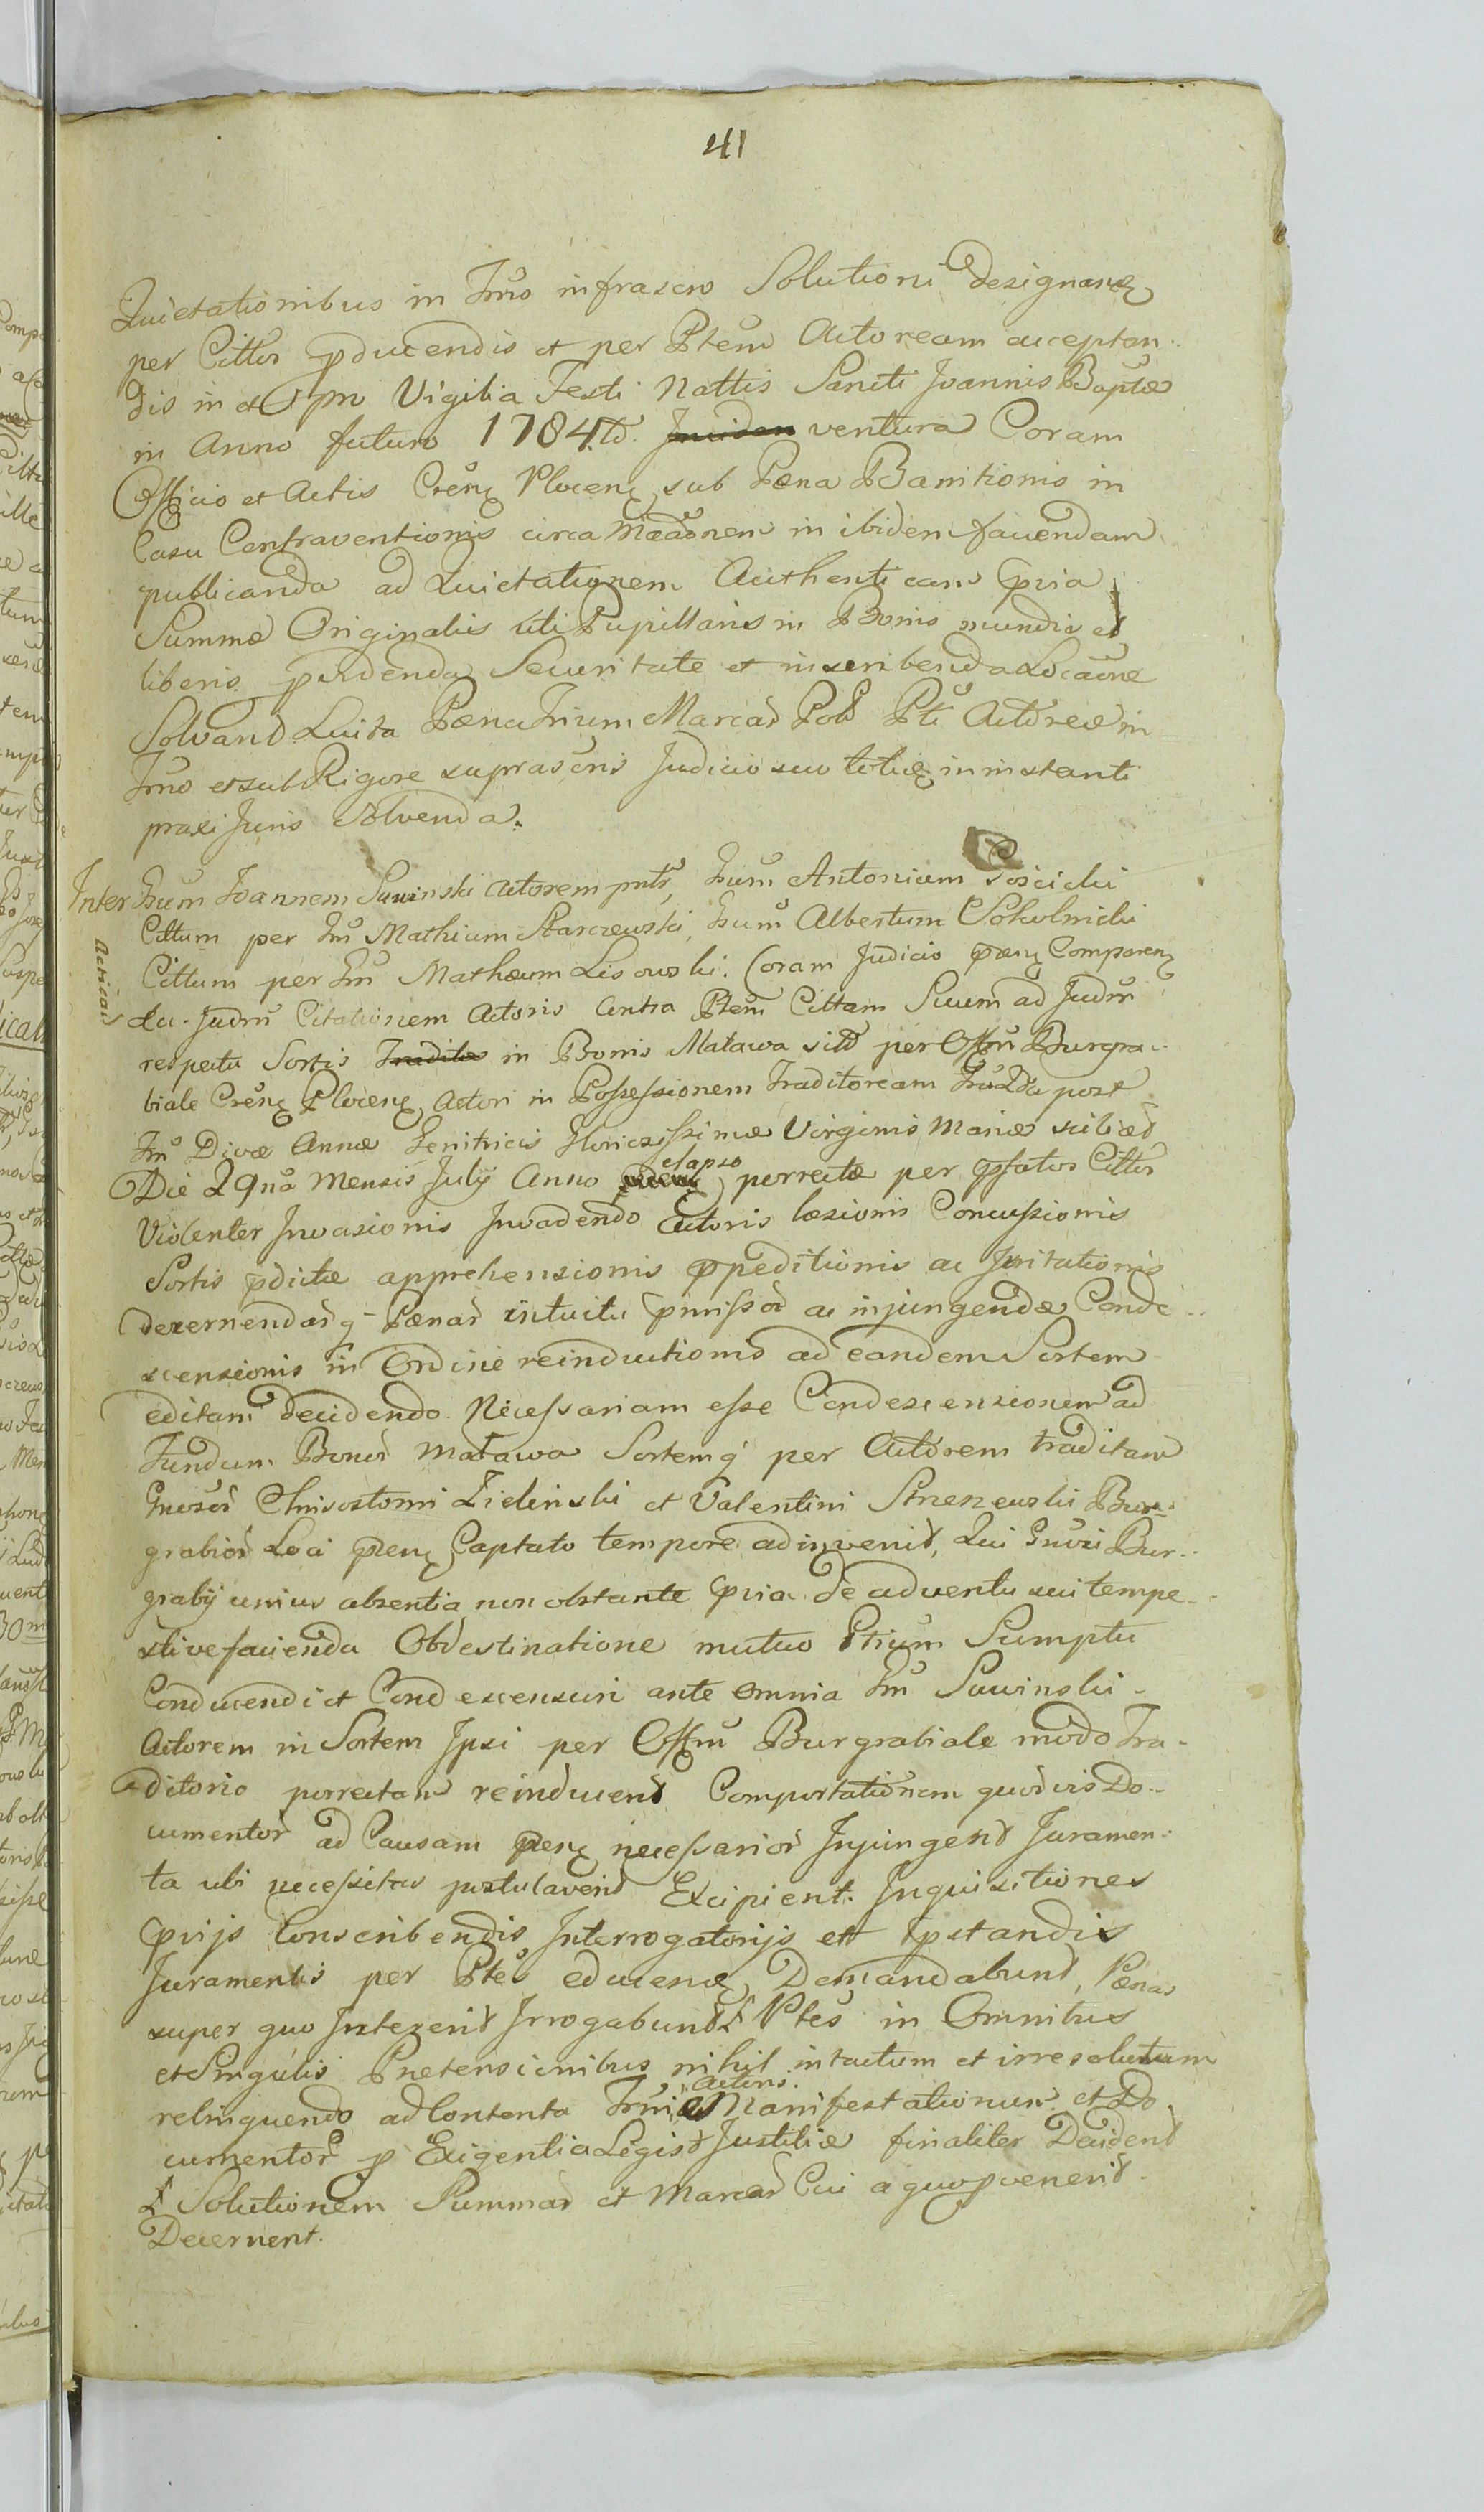 41
Quietationibus in Trno infrascro Solutioni Designanz
per Cittos pducendis et per Ptem Actoream acceptan-
dis in et pro Vigilia Festi Nattis Sancti Joannis Baptæ
in Anno futuro 1784to. ventura Coram
Officio et Actis Crenz Plocenz sub Pæna Bannitionis in
Casu Contraventionis circa in ibidem faciendam
publicanda ad Quietationem Authenticam pvia
Summæ Originalis uti Pupillaris in Bonis mundis et
liberis pvidenda Securitate et inscribenda Locaone
Solvand Luita Pæna Trium Marcar Pol Pti Actoreæ in
Trno et sub Rigore suprascris Judicio suo toties in instanti
praxi Juris Solvenda.
Inter Gnum Joannem Suwinski Actorem pntr, Gnum Antonium Coscicki
Cittum per Gnm Mathium Starczewski, Gnum Albertum Sokolnicki
Cittum per Gnm Mathæum Lisowski. Coram Judicio pæsenz Comparenz
Acticat
Judm Citationem Actoris Contra Ptem Cittam Suum ad Judm
respectu Sortis in Bonis Matawa sitt per Offm Burgra-
biale Crenz Plocenz Actori in Possessionem Traditoream post
Trm Divæ Annæ Genitricis Gloriosissimæ Virginis Mariæ scilicet
Die 29na Mensis July Anno elapso porrectæ per pfatos Cittos
Violenter Invasionis Invadendo Actoris læsionis Concussionis
Sortis pdictæ apprehensionis ppeditionis ac Irritationis
decernendarq Pænar intuitu pmissor ac injungendæ Conde-
scensionis in Ordine reinductionis ad eandem Sortem
editam decidendo Necessariam esse Condescensionem ad
Fundum Bonor Matawa Sortemq per Actorem traditam
Gnosor Chrisostomi Zielinski et Valentini Strzeszewski Bur-
grabior Loci psenz Captato tempore adinvenit, Qui Gnosi Bur-
graby unius absentia non obstante pvia de adventu sui tempe-
stive facienda Obdestinatione mutuo Ptium Sumptu
Conducendi et Condescensuri ante omnia Gnm Suwinski
Actorem in Sortem Ipsi per Offm Burgrabiale modo Tra-
ditorio porrectam reinducent Comportationem quorvis Do-
cumentor ad Causam psenz necessarior Injungent Juramen-
ta ubi necessitas postulaverit Excipient. Inquisitiones
pvijs Conscribendis Interrogatorijs et pstandis
Juramentis per Ptes educenz Demandabunt, Pænas
super quo Intererit Irrogabunt & Ptes in Omnibus
et Singulis Prætensionibus nihil intactum et irresolutum
relinquendo ad Contenta Trmi Actoris Manifestationum et Do-
cumentor p Exigentia Legis & Justitiæ finaliter Decident
& Solutionem Summar et Marcar Cui a quo pvenerit
Decernent.